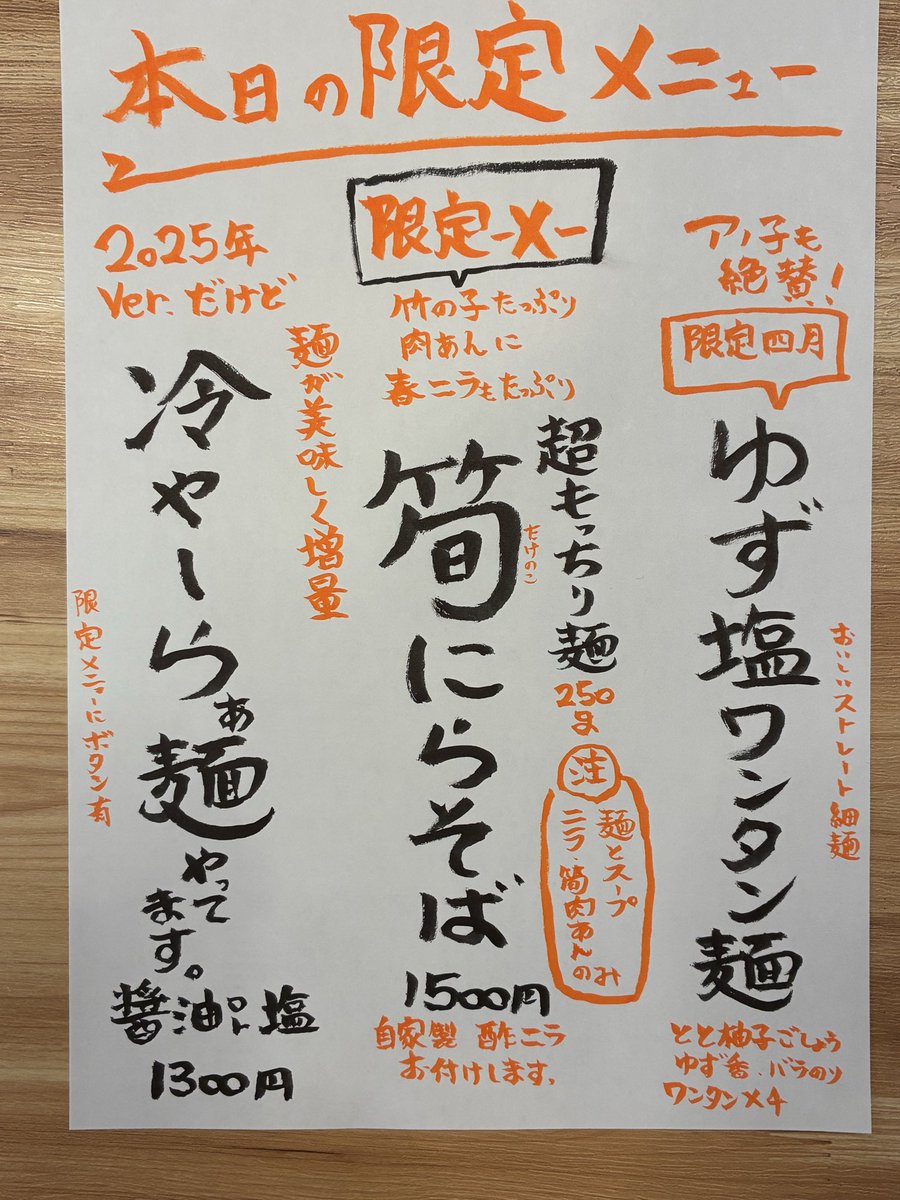 本日の限定メニュー
アノ子も
絶賛!!
限定四月
ゆず塩ワンタン麺
おいしいストレート細麺
とと柚子ごしょう
ゆず香、バラのり
ワンタン×4
限定-メ-
竹の子たっぷり
肉あんに
春ニラもたっぷり
超もっちり麺
250g
注
麺とスープ
ニラ・筍肉あんのみ
筍にらそば
たけのこ
1500円
自家製 酢ニラ
お付けします。
2025年
Ver.だけど
麺が美味しく増量
冷やーらぁ麺やって
ます。
限定メニューにボタン有
醤油or塩
1300円